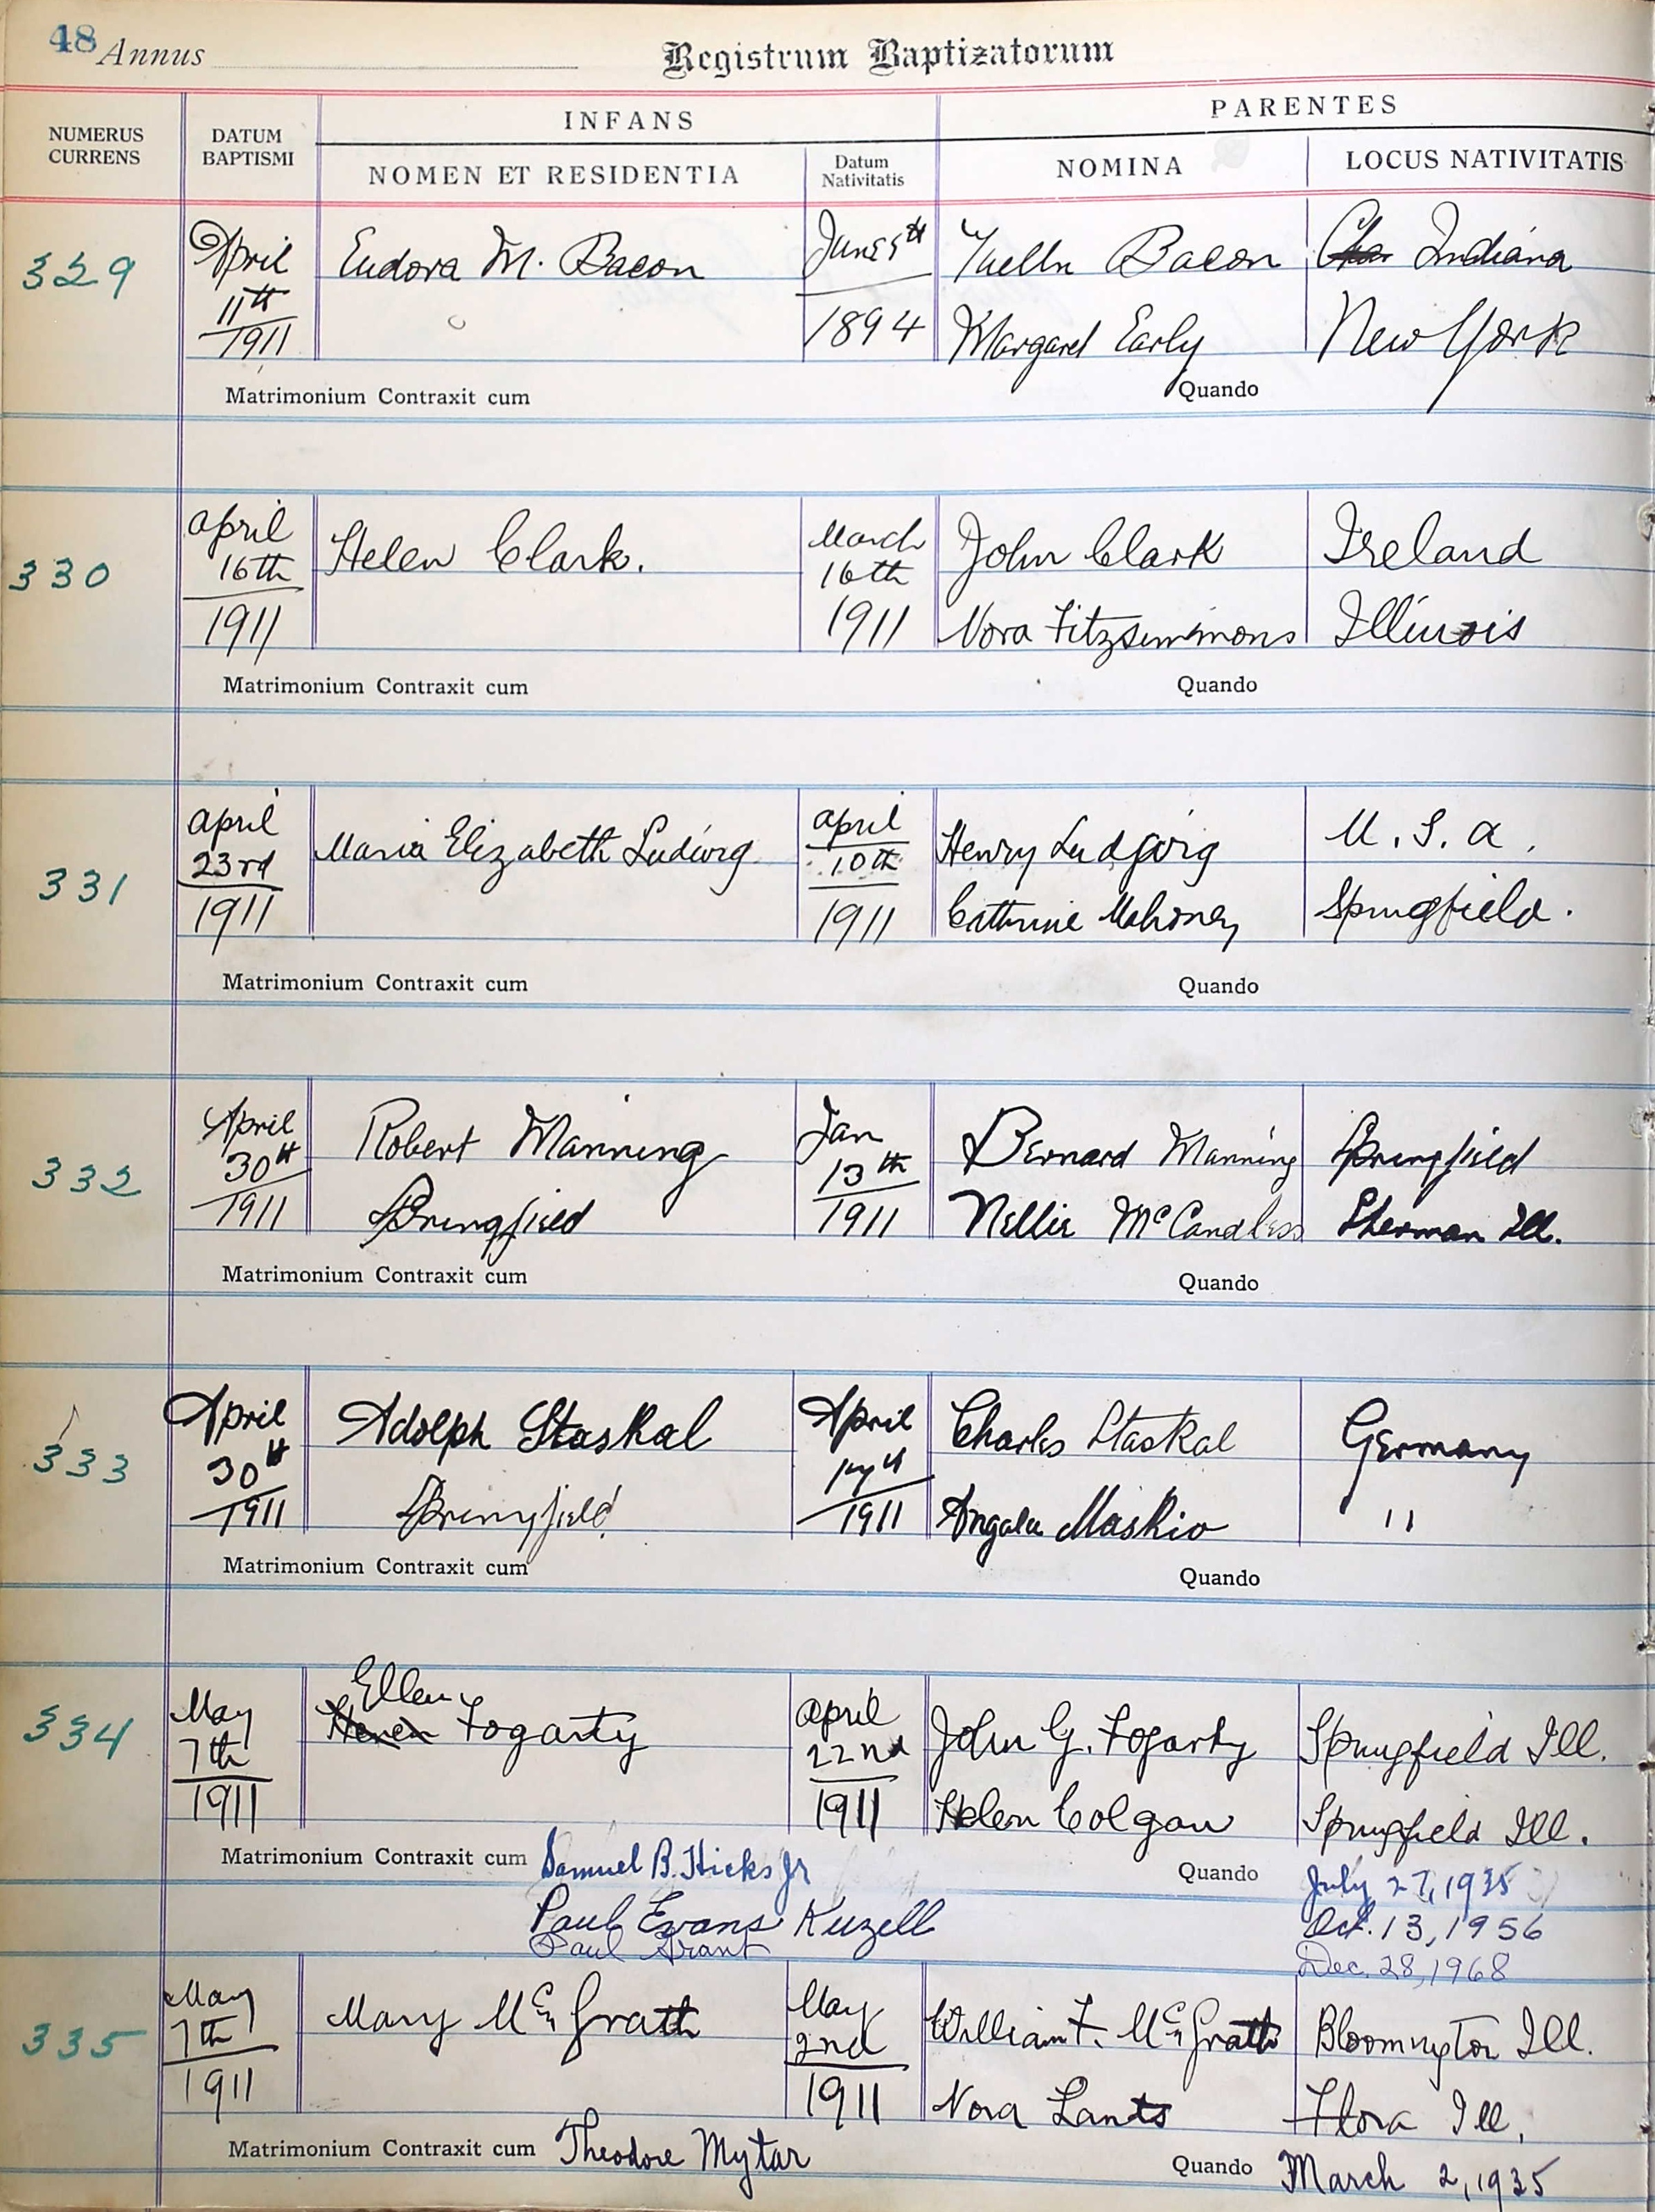 48 Annus Registrum Baptizatorum
NUMERUS CURRENS
DATUM BAPTISMI
INFANS
NOMEN ET RESIDENTIA
Datum Nativitatis
PARENTES
NOMINA
LOCUS NATIVITATIS
329
April
11th
1911
Eudora M. Bacon
June
1894
Bacon
Margaret Early
Indiana
New York
Matrimonium Contraxit cum Quando
330
April
16th
1911
Helen Clark.
March
16th
1911
John Clark
Nora Fitzsimmons
Ireland
Illinois
Matrimonium Contraxit cum Quando
331
April
23rd
1911
Maria Elizabeth Ludwig
April
10th
1911
Henry Ludwig
Cathrine Mahoney
U. S. A.
Springfield.
Matrimonium Contraxit cum Quando
332
April
30th
1911
Robert Manning
Springfield
Jan
13th
1911
Bernard Manning
Nellie McCandless
Springfield
Sherman Ill.
Matrimonium Contraxit cum Quando
333
April
30th
1911
Adolph Staskal
Springfield
April
1911
Charles Staskal
Angela Maskio
Germany
"
Matrimonium Contraxit cum Quando
334
May
7th
1911
Ellen
Helen Fogarty
April
22nd
1911
John G. Fogarty
Helen Colgan
Springfield Ill.
Springfield Ill.
Matrimonium Contraxit cum Samuel B. Hicks Jr Quando July 27, 1935
Paul Evans Kuzell Oct. 13, 1956
Paul Grant Dec. 28, 1968
335
May
7th
1911
Mary McGrath
May
2nd
1911
William F. McGrath
Nora Lants
Bloomington Ill.
Flora Ill.
Matrimonium Contraxit cum Theodore Mytar Quando March 2, 1935